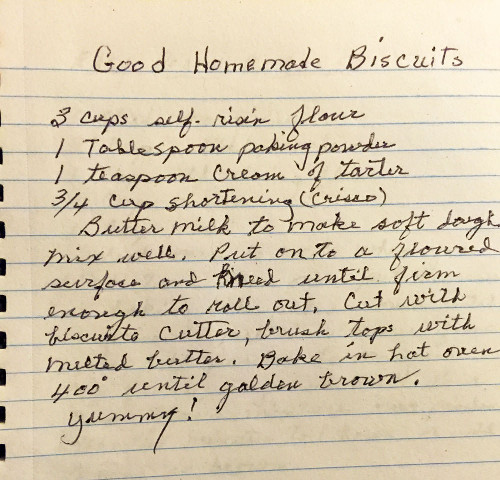 Good Homemade Biscuits
3 cups self-risin flour
1 Tablespoon paking powder
1 teaspoon cream of tarter
3/4 cup shortening (Crisco)
Butter milk to make soft dough
mix well. Put on to a floured
surface and kneed until firm
enough to roll out. Cut with
biscuits cutter, brush tops with
melted butter. Bake in hot oven
400° until golden brown.
yummy!